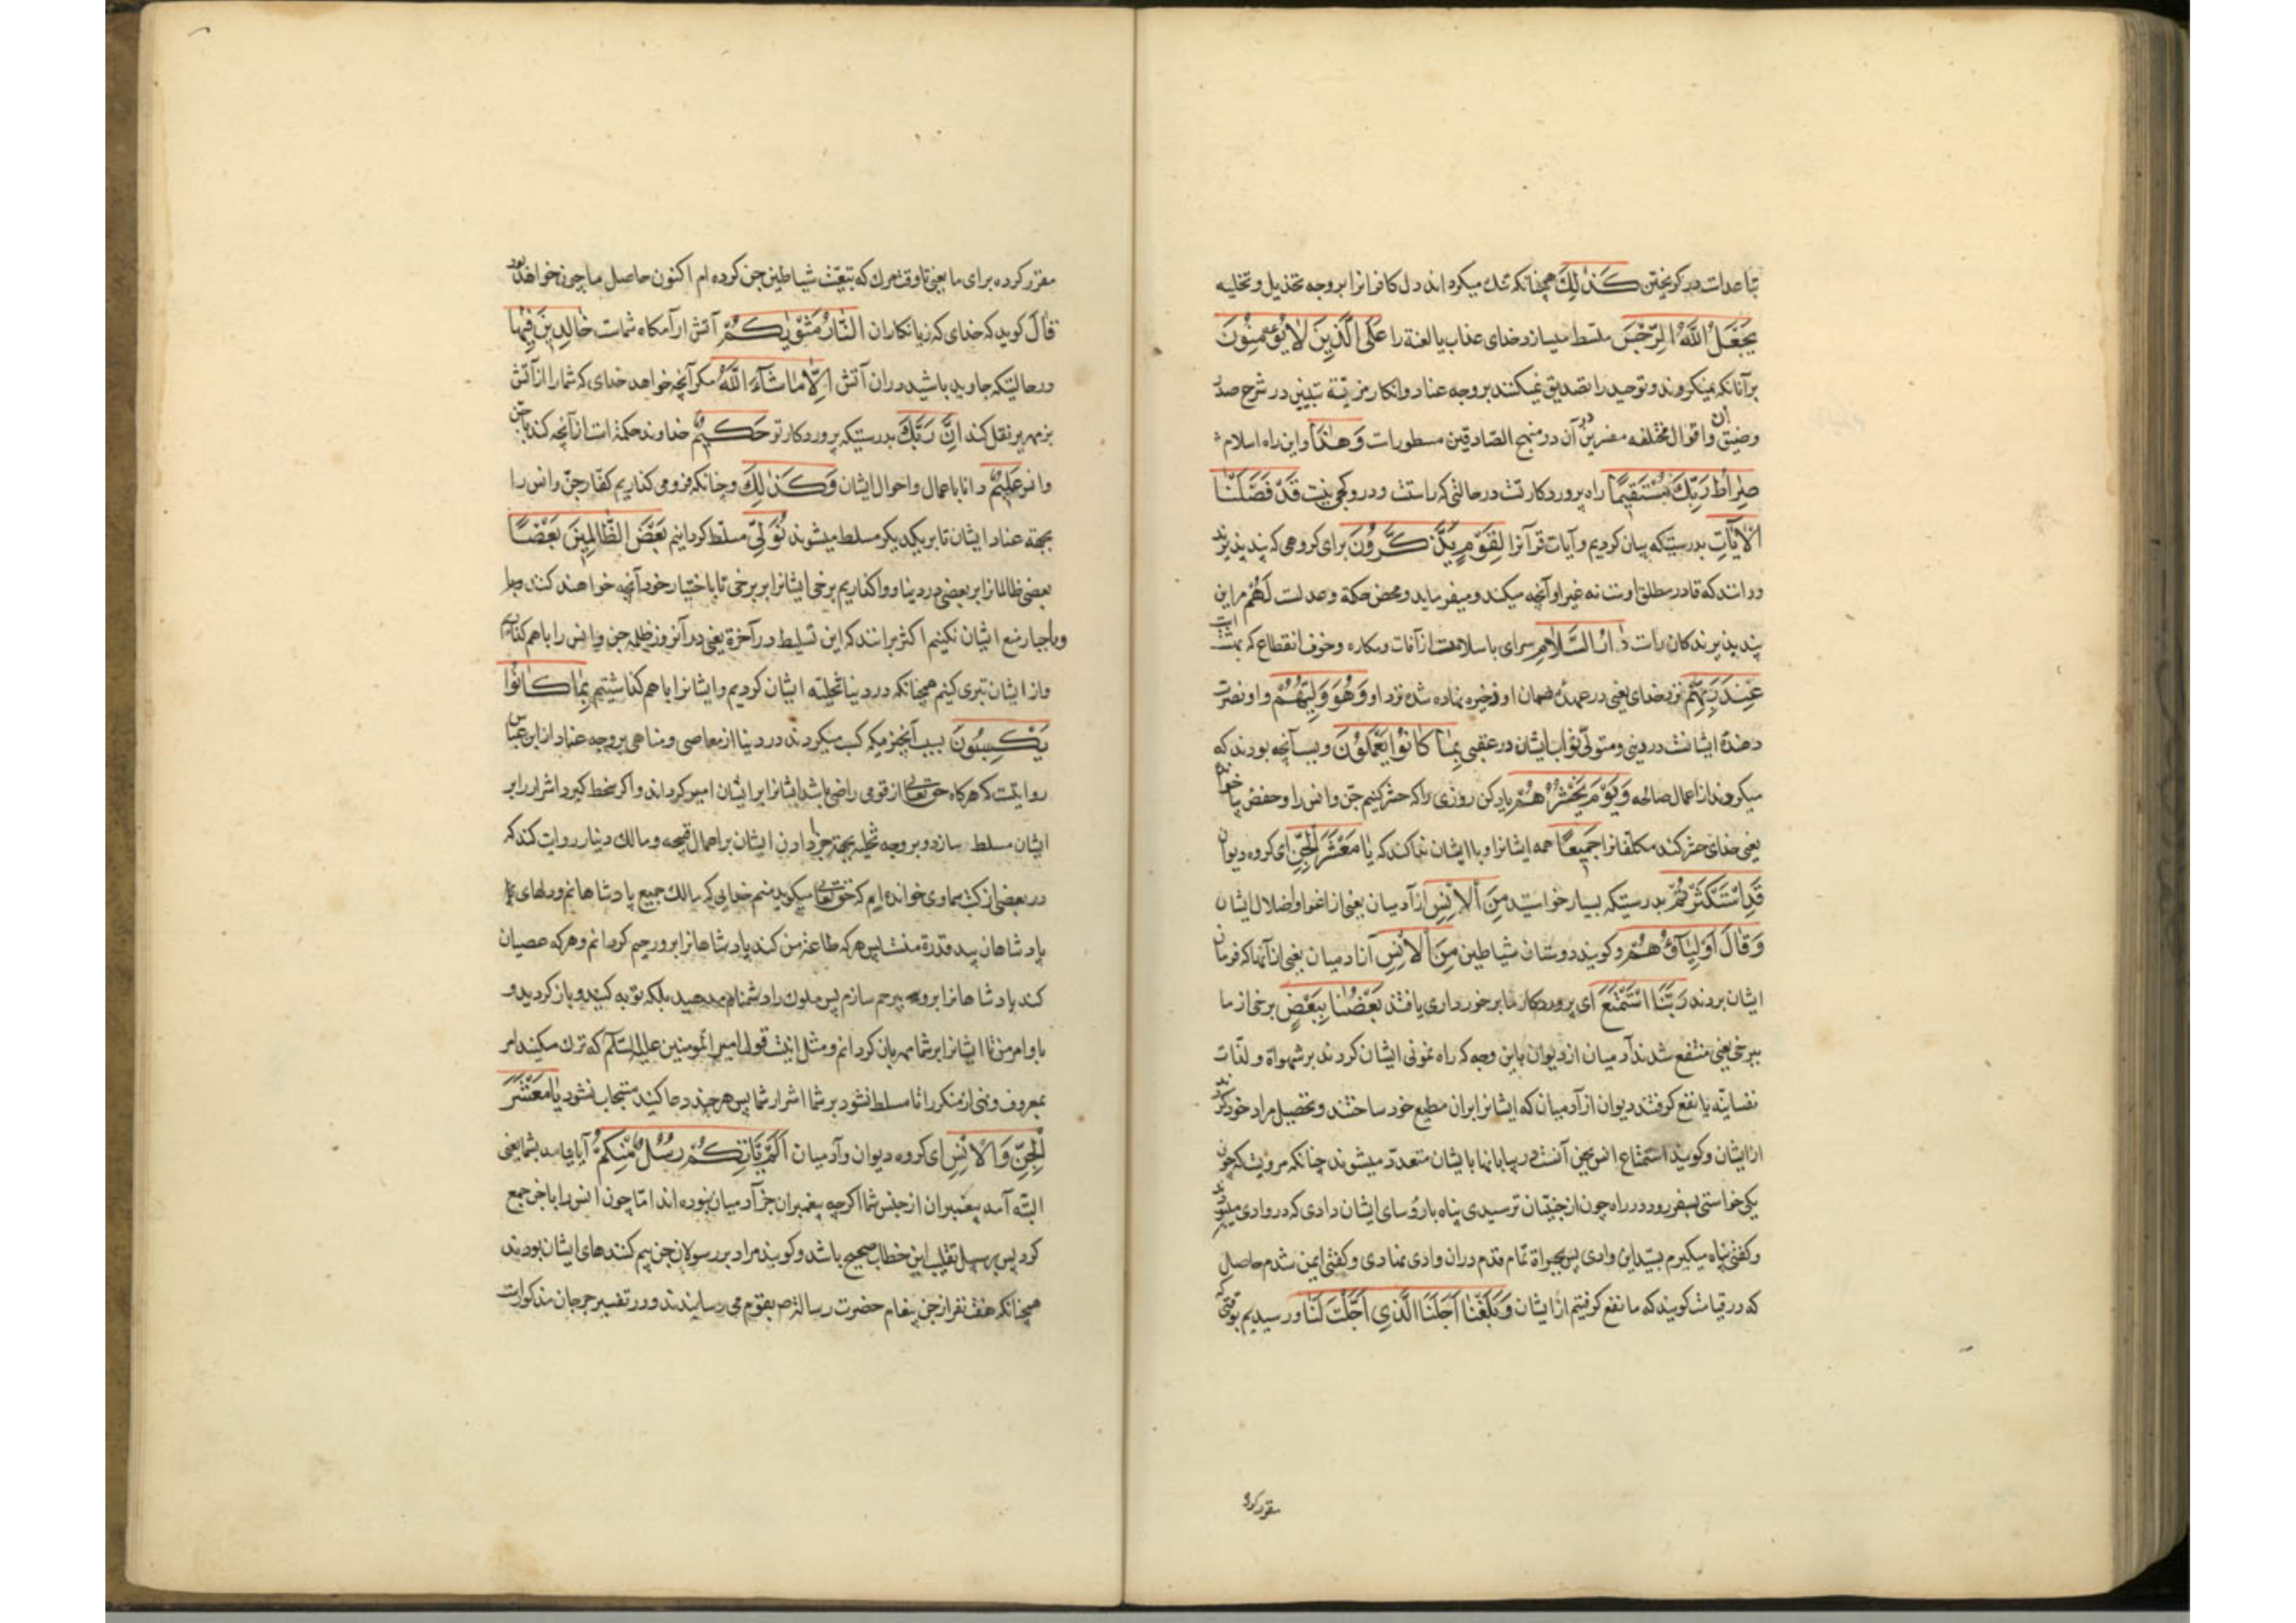 كَذٰلِكَ همچنانکه تنك میکرداند دل کافرانرا بر وجه تخذیل و تخلیه
يَجْعَلُ اللّٰهُ الرِّجْسَ مسلط میسازد خدای عذاب یا لعنة را عَلَى الَّذِينَ لَا يُؤْمِنُونَ
بر آنانکه نمیکروند و توحید را تصدیق نمیکنند بر وجه عناد و انکار در شرح صدر
و ضیق ان و اقوال مختلفه مفسرین در آن در منهج الصادقین مسطورات وَهٰذَا و این راه اسلام
صِرَاطُ رَبِّكَ مُسْتَقِيمًا راه پروردکار تست در حالتی که راستست و در و کجی نیست قَدْ فَصَّلْنَا
الْآيَاتِ بدرستیکه بیان کردیم آیات قرآنرا لِقَوْمٍ يَذَّكَّرُونَ برای کروهی که پند پذیرند
و دانند که قادر مطلق اوست نه غیر او و آنچه میکند و میفرماید محض حکمة و عدلست لَهُمْ مر این
پند پذیرندکان راست دَارُ السَّلَامِ سرای با سلامت از آفات و مکاره و خوف انقطاع که بهشت است
عِنْدَ رَبِّهِمْ نزد خدای یعنی در عهده ضمان او و ذخیره نهاده شده نزد او وَهُوَ وَلِيُّهُمْ و او نصرت
دهندۀ ایشانست در دنیی و متولّی ثواب ایشان در عقبی بِمَا كَانُوا يَعْمَلُونَ و بسبب آنچه بودند که
میکردند از اعمال صالحه وَيَوْمَ يَحْشُرُهُمْ یاد کن روزی را که حشر کنیم جن و انس را و حفص بیا خواند
یعنی خدای حشر کند مکلفانرا جَمِيعًا همه ایشانرا و با ایشان ندا کند که يَا مَعْشَرَ الْجِنِّ ای کروه دیوان
قَدِ اسْتَكْثَرْتُمْ بدرستیکه بسیار خواستید مِنَ الْإِنْسِ از آدمیان یعنی از اغوا و اضلال ایشان
وَقَالَ أَوْلِيَاؤُهُمْ و کویند دوستان شیاطین مِنَ الْإِنْسِ از آدمیان یعنی از آنها که فرمان
ایشان بردند رَبَّنَا اسْتَمْتَعَ ای پروردکار ما برخورداری یافتند بَعْضُنَا بِبَعْضٍ برخی از ما
ببرخی یعنی منتفع شدند آدمیان از دیوان باین وجه که راه نمونی ایشان کردند بر شهواة و لذّات
نفسانیّه یا نفع کرفتند دیوان از آدمیان که ایشانرا بران مطیع خود ساختند و تحصیل مراد خود کردند
از ایشان و کویند استمتاع انس بجن آنست در بیابانها بایشان متعدد میشوند چنانکه مرویست که چون
یکی خواستی بسفر رود در راه چون از جنّیان ترسیدی پناه با رؤسای ایشان دادی که در وادی میبودند
و کفتی پناه میکیرم بسید این وادی پس بجراة تمام قدم دران وادی نهادی و کفتی ایمن شدم حاصل
که در قیامت کویند که ما نفع کرفتیم از ایشان وَبَلَغْنَا أَجَلَنَا الَّذِي أَجَّلْتَ لَنَا و رسیدیم بوقتی که
مقرر کرده
مقرر کرده برای ما یعنی تا وقت مرك که تبعیّت شیاطین جن کرده ام اکنون حاصل ما چون خواهد بود
قَالَ کوید که خدای که زیانکاران النَّارُ مَثْوَاكُمْ آتش آرامکاه شماست خَالِدِينَ فِيهَا
در حالتیکه جاوید باشید دران آتش إِلَّا مَا شَاءَ اللّٰهُ مکر آنچه خواهد خدای که شما را از آتش
بزمهریر نقل کند إِنَّ رَبَّكَ بدرستیکه پروردکار تو حَكِيمٌ خداوند حکمة است از آنچه کند با جن
و انس عَلِيمٌ دانا با عمال و احوال ایشان وَكَذٰلِكَ و چنانکه فرو می کذاریم کفار جن و انس را
بجهة عناد ایشان تا بر یکدیکر مسلط میشوند نُوَلِّي مسلط کردانیم بَعْضَ الظَّالِمِينَ بَعْضًا
بعضی ظالمانرا بر بعضی در دنیا و واکذاریم برخی ایشانرا بر برخی تا باختیار خود آنچه خواهند کنند
و باجبار منع ایشان نکنیم اکثر برانند که این تسلیط در آخرة یعنی در آنروز ظلمه جن و انس را باهم کذاریم
و از ایشان تبری کنیم همچنانکه در دنیا تخلیه ایشان کردیم و ایشانرا باهم کذاشتیم بِمَا كَانُوا
يَكْسِبُونَ بسبب آنچیزیکه کسب میکردند در دنیا از معاصی و مناهی بر وجه عناد از ابن عباس
روایتست که هرکاه حقتعالی از قومی راضی باشد ایشانرا بر ایشان امیر کرداند و اکر سخط کیرد اشرار را بر
ایشان مسلط سازد و بر وجه تخلیه بجهة جزا دادن ایشان بر اعمال قبیحه و مالك دینار روایت کند که
در بعضی از کتب سماوی خوانده ایم که حقتعالی میکوید منم خدایی که مالك جمیع پادشاهانم و دلهای
پادشاهان بید قدرة منست پس هرکه طاعة من کند پادشاهانرا برو رحیم کردانم و هرکه عصیان
کند پادشاهانرا برو بیرحم سازم پس ملوك را دشنام مدهید بلکه توبه کنید و باز کردید و
باوامر من تا ایشانرا بر شما مهربان کردانم و مثل اینست قول امیر المومنین علیه السّلم که ترك مکنید امر
بمعروف و نهی از منکر را تا مسلط نشود بر شما اشرار شما پس هر چند دعا کنید مستجاب نشود يَا مَعْشَرَ
الْجِنِّ وَالْإِنْسِ ای کروه دیوان و آدمیان أَلَمْ يَأْتِكُمْ رُسُلٌ مِنْكُمْ آیا نیامد بشما یعنی
البته آمد پیغمبران از جنس شما اکرچه پیغمبران جز آدمیان نبوده اند امّا چون انس را با جن جمع
کرد پس بر سبیل تغلیب این خطاب صحیح باشد و کویند مراد بر رسولان جن بیم کنندهای ایشان بودند
همچنانکه هفت نفر از جن پیغام حضرت رسالة ص بقوم می رسانیدند و در تفسیر جرجان مذکورات